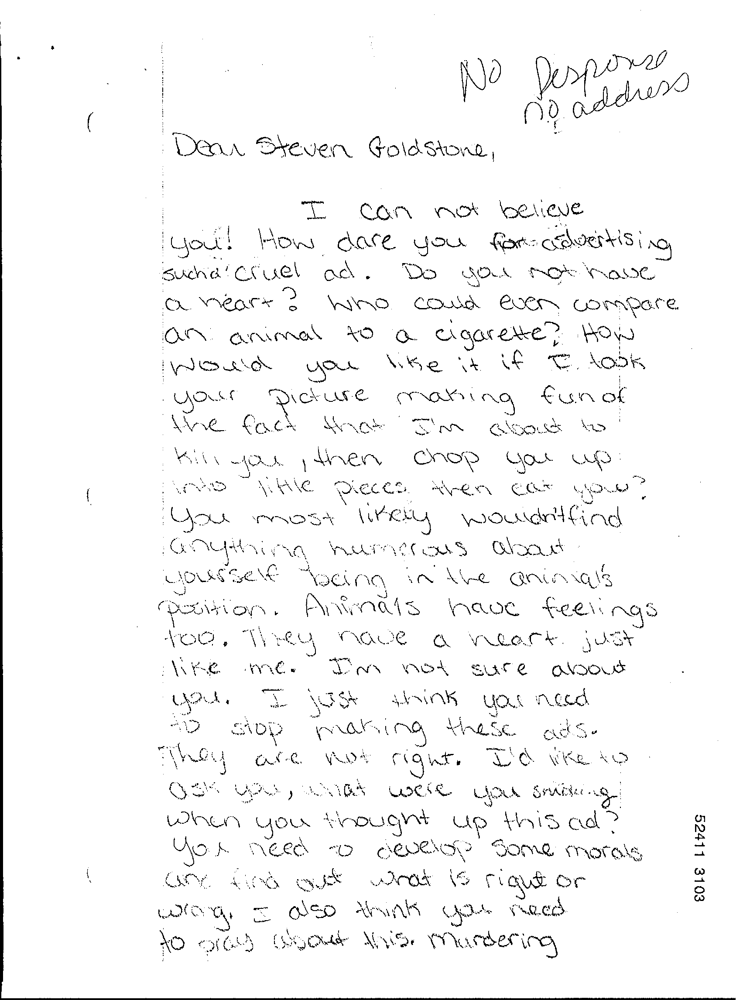 No Response
no address
Dear Steven Goldstone,
I can not believe
you! How dare you for advertising
such a cruel ad. Do you not have
a heart? Who could even compare
an animal to a cigarette? How
would you like it if I took
your picture making fun of
the fact that I'm about to
kill you, then chop you up
into little pieces then eat you?
You most likely wouldn't find
anything humerous about
yourself being in the animal's
position. Animals have feelings
too. They have a heart just
like me. I'm not sure about
you. I just think you need
to stop making these ads.
They are not right. I'd like to
ask you, what were you smoking
when you thought up this ad?
You need to develop some morals
and find out what is right or
wrong. I also think you need
to pray about this. Murdering
52411 3103